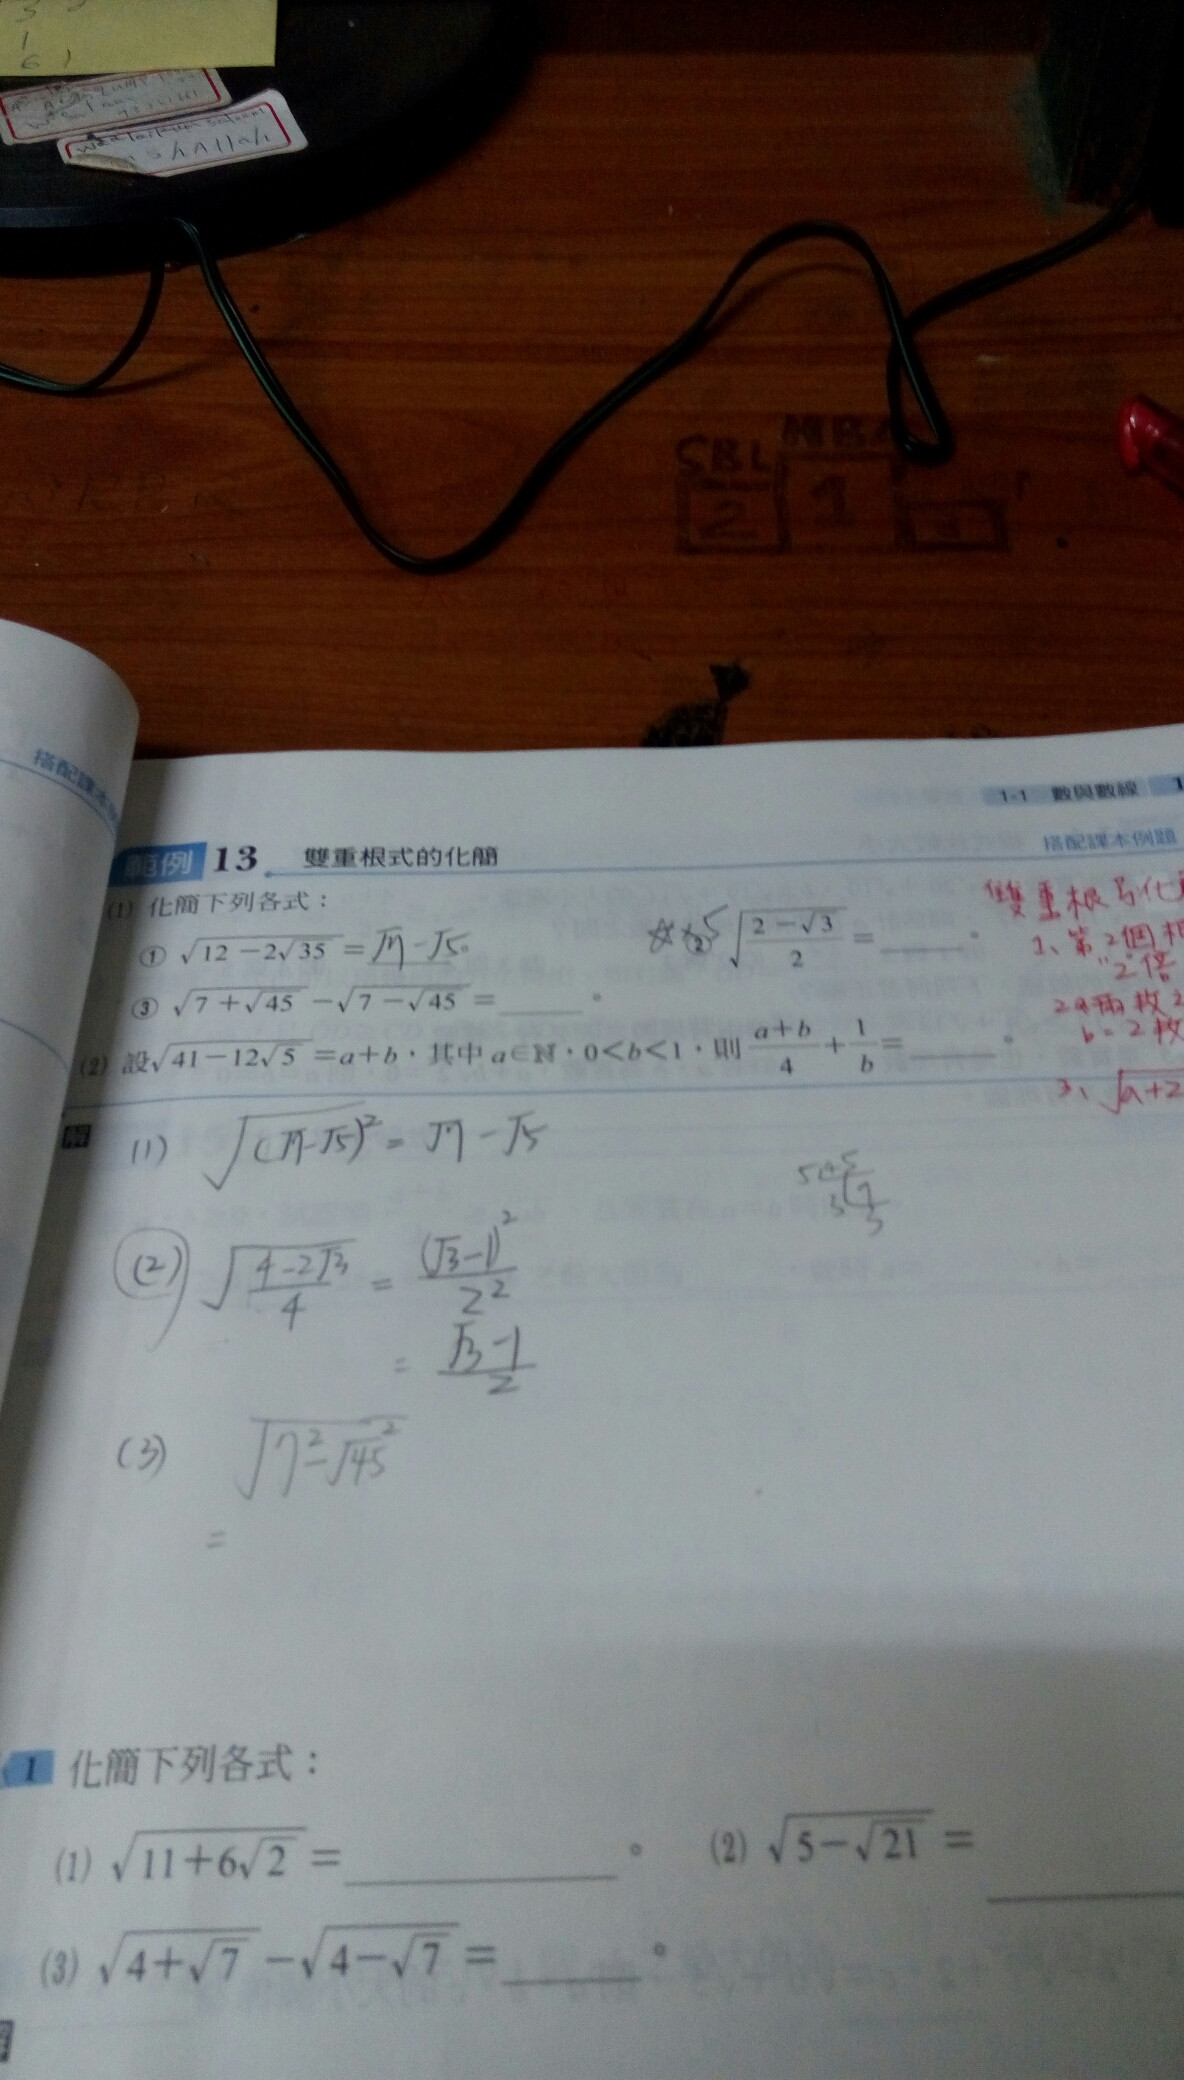 3
1
6 1
SBL
2
1
搭配課本
1-1 數與數線
範例 13 雙重根式的化簡
搭配課本例題
(1) 化簡下列各式：
① √(12-2√35) = √7-√5。
② √((2-√3)/2) = 。
③ √(7+√45) - √(7-√45) = 。
(2) 設√(41-12√5) = a+b，其中a∈N，0<b<1，則 (a+b)/4 + 1/b = 。
雙重根号化
1、第2個根
"2"倍
b=2枚
3、√(a+2
解
(1) √((√7-√5)²) = √7-√5
(2) √((4-2√3)/4) = (√3-1)²/2²
= (√3-1)/2
(3) √(7²-√45²)
=
1 化簡下列各式：
(1) √(11+6√2) = 。 (2) √(5-√21) =
(3) √(4+√7) - √(4-√7) = 。